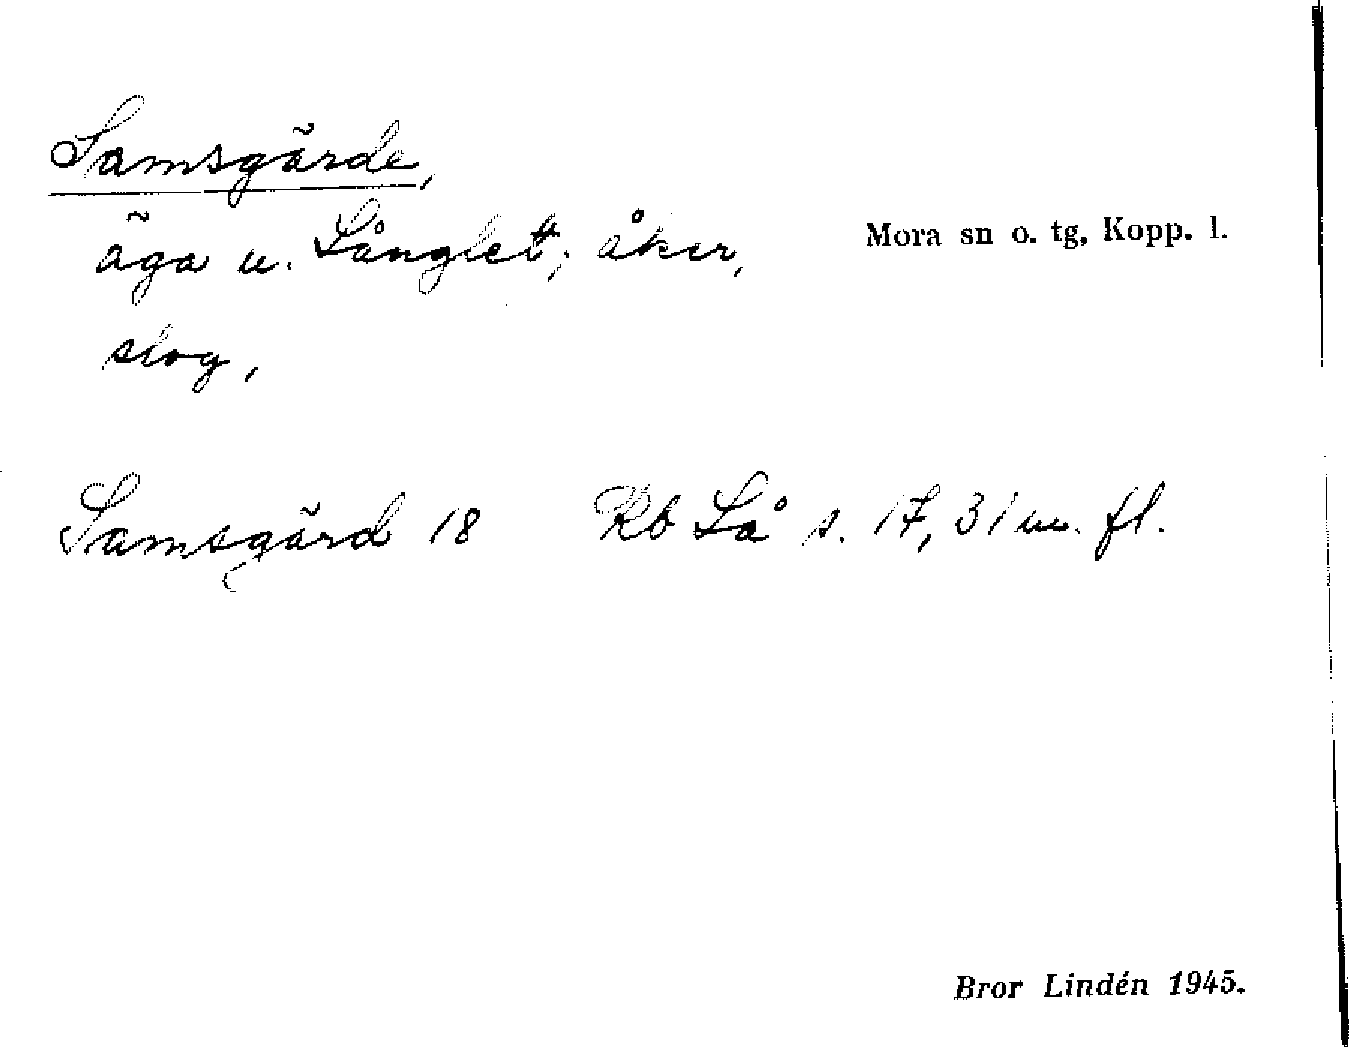 Samsgärde,
äga u. Långlet; åker,
slog,
Mora sn o. tg, Kopp. l.
Samsgärd 18 Rb Lå s. 17, 31 m. fl.
Bror Lindén 1945.